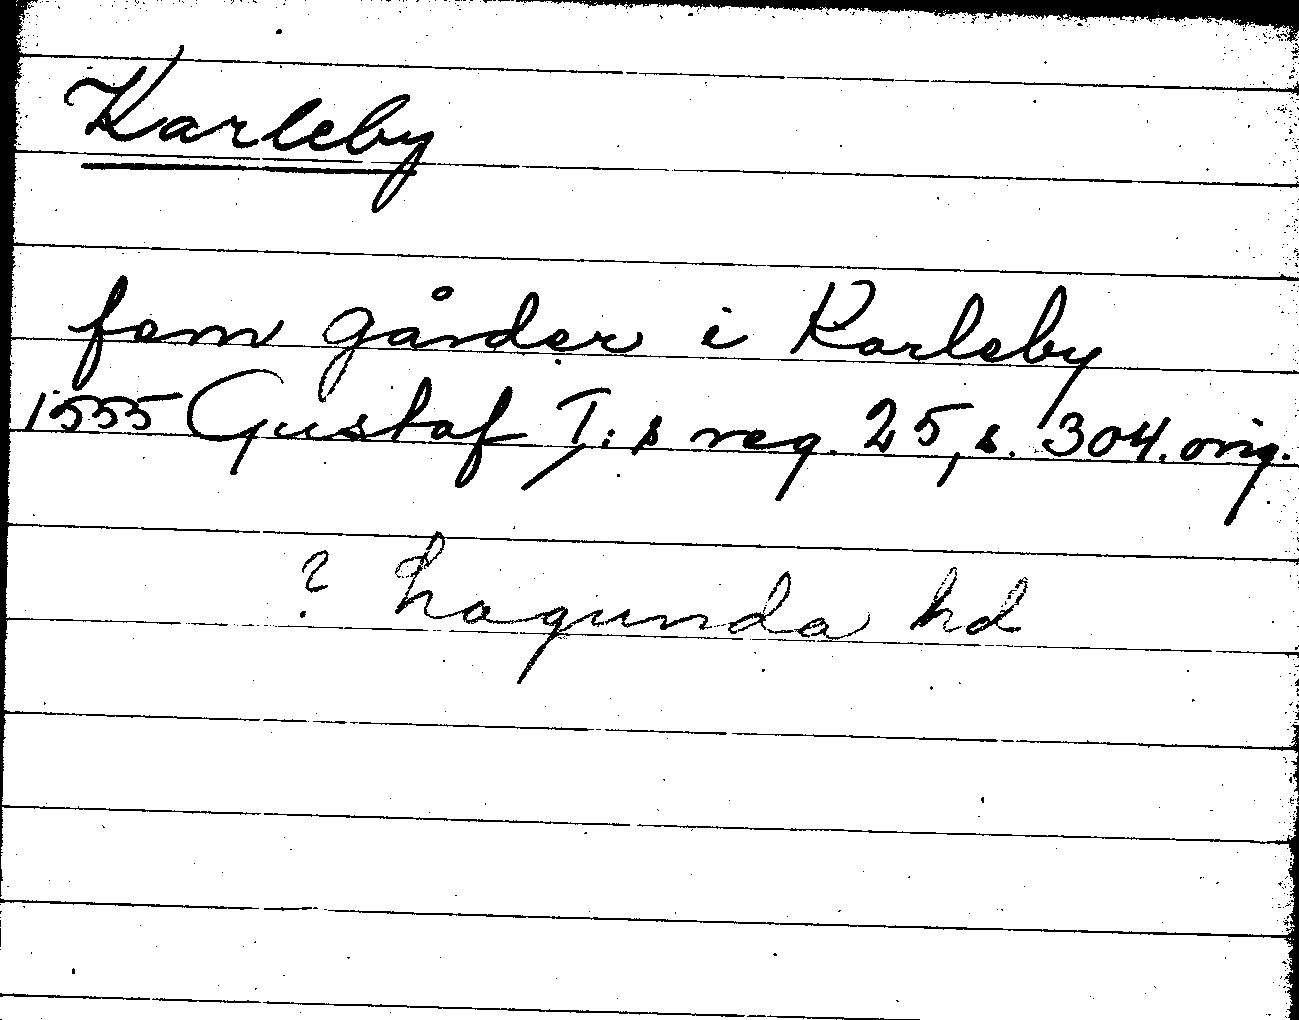 Karleby
fem gårder i Karleby
1555 Gustaf I:s reg. 25, s. 304. orig.
? Lagunda hd